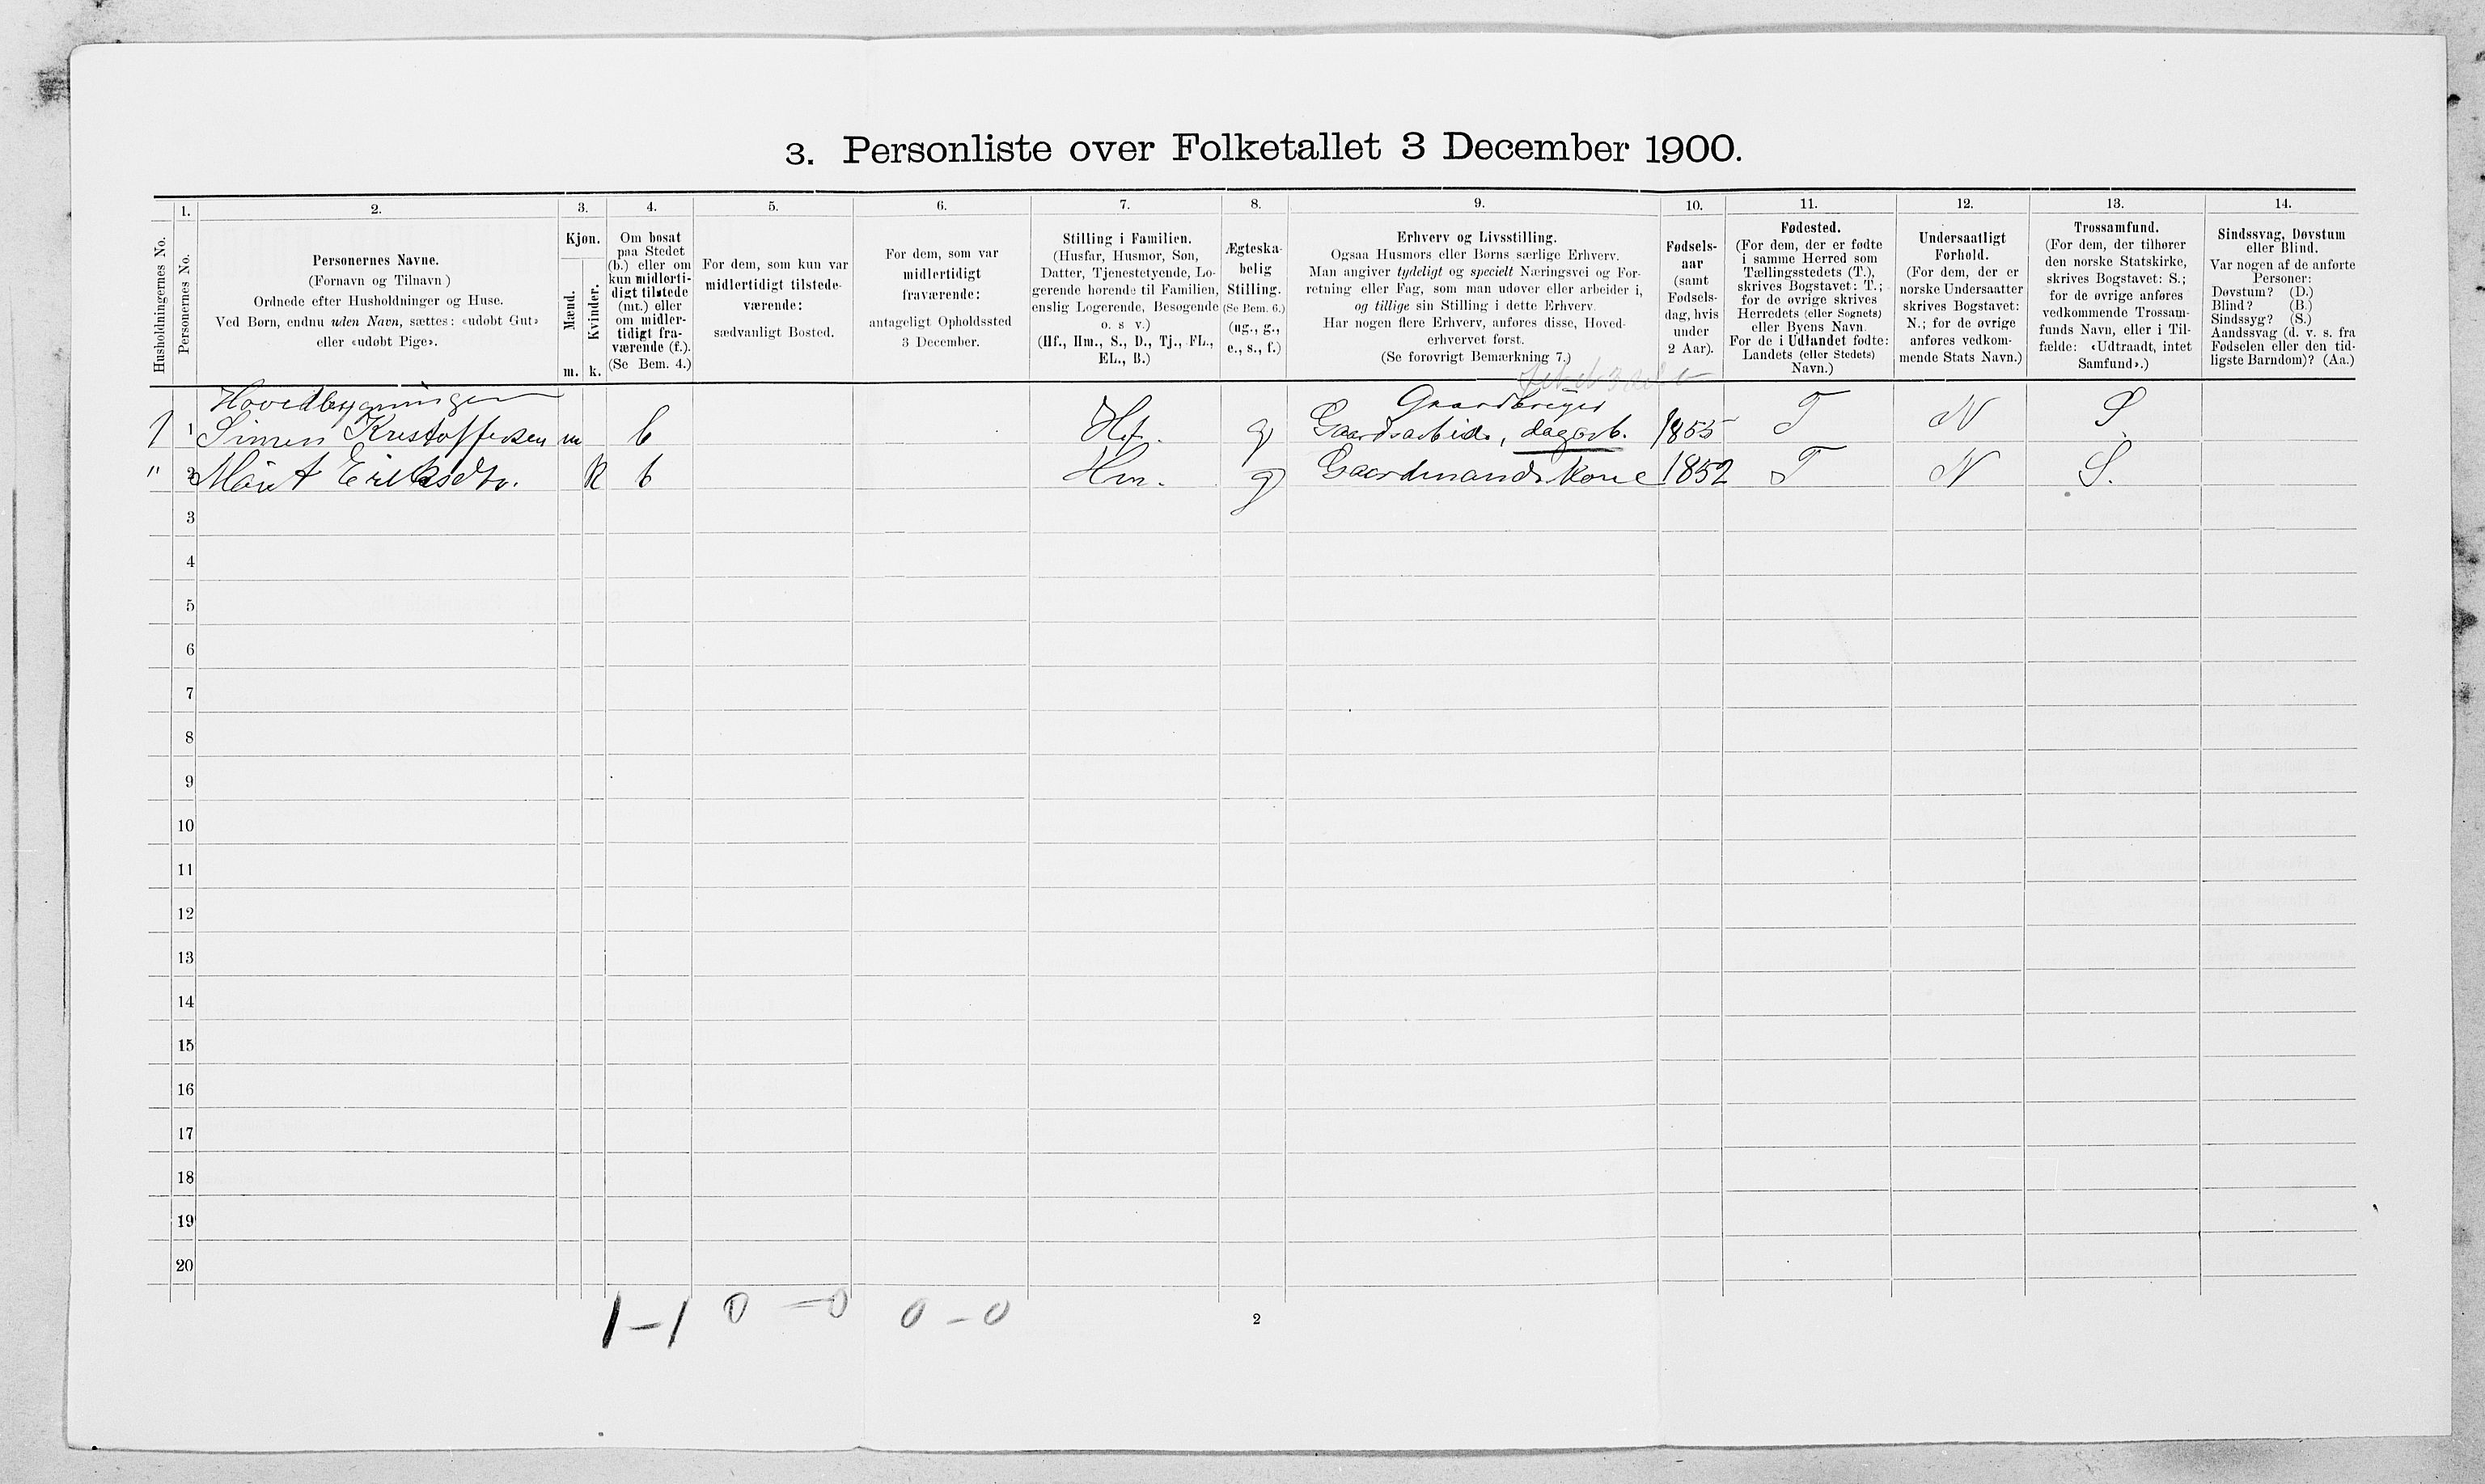 3. Personliste over Folketallet 3 December 1900.
Husholdningernes No.
1.
Personernes No.
2.
Personernes Navne.
(Fornavn og Tilnavn)
Ordnede efter Husholdninger og Huse.
Ved Børn, endnu uden Navn, sættes: «udøbt Gut»
eller «udøbt Pige».
3.
Kjøn.
Mænd.
Kvinder.
m. k.
4.
Om bosat
paa Stedet
(b.) eller om
kun midlerti-
digt tilstede
(mt.) eller
om midler-
tidigt fra-
værende (f.).
(Se Bem. 4.)
5.
For dem, som kun var
midlertidigt tilstede-
værende:
sædvanligt Bosted.
6.
For dem, som var
midlertidigt
fraværende:
antageligt Opholdssted
3 December.
7.
Stilling i Familien.
(Husfar, Husmor, Søn,
Datter, Tjenestetyende, Lo-
gerende hørende til Familien,
enslig Logerende, Besøgende
o. s v.)
(Hf., Hm., S., D., Tj., FL.,
EL., B.)
8.
Ægteska-
belig
Stilling.
(Se Bem. 6.)
(ug., g.,
e., s., f.)
9.
Erhverv og Livsstilling.
Ogsaa Husmors eller Børns særlige Erhverv.
Man angiver tydeligt og specielt Næringsvei og For-
retning eller Fag, som man udøver eller arbeider i,
og tillige sin Stilling i dette Erhverv.
Har nogen flere Erhverv, anføres disse, Hoved-
erhvervet først.
(Se forøvrigt Bemærkning 7.)
10.
Fødsels-
aar
(samt
Fødsels-
dag, hvis
under
2 Aar).
11.
Fødested.
(For dem, der er fødte
i samme Herred som
Tællingsstedets (T.),
skrives Bogstavet: T.;
for de øvrige skrives
Herredets (eller Sognets)
eller Byens Navn.
For de i Udlandet fødte:
Landets (eller Stedets)
Navn.)
12.
Undersaatligt
Forhold.
(For dem, der er
norske Undersaatter
skrives Bogstavet:
N.; for de øvrige
anføres vedkom-
mende Stats Navn.)
13.
Trossamfund.
(For dem, der tilhører
den norske Statskirke,
skrives Bogstavet: S.;
for de øvrige anføres
vedkommende Trossam-
funds Navn, eller i Til-
fælde: «Udtraadt, intet
Samfund».)
14.
Sindssvag, Døvstum
eller Blind.
Var nogen af de anførte
Personer:
Døvstum? (D.)
Blind? (B.)
Sindssyg? (S.)
Aandssvag (d. v. s. fra
Fødselen eller den tid-
ligste Barndom)? (Aa.)
Hovedbygningen Gaardbruger
1 1 Simen Kristoffersen m b Hf. g Gaardsarbeide, dagarb. 1855 T N S.
" 2 Marit Eriksdtr. k b Hm. g Gaardmands kone 1852 T N S.
3
4
5
6
7
8
9
10
11
12
13
14
15
16
17
18
19
20
1-1 0-0 0-0
2